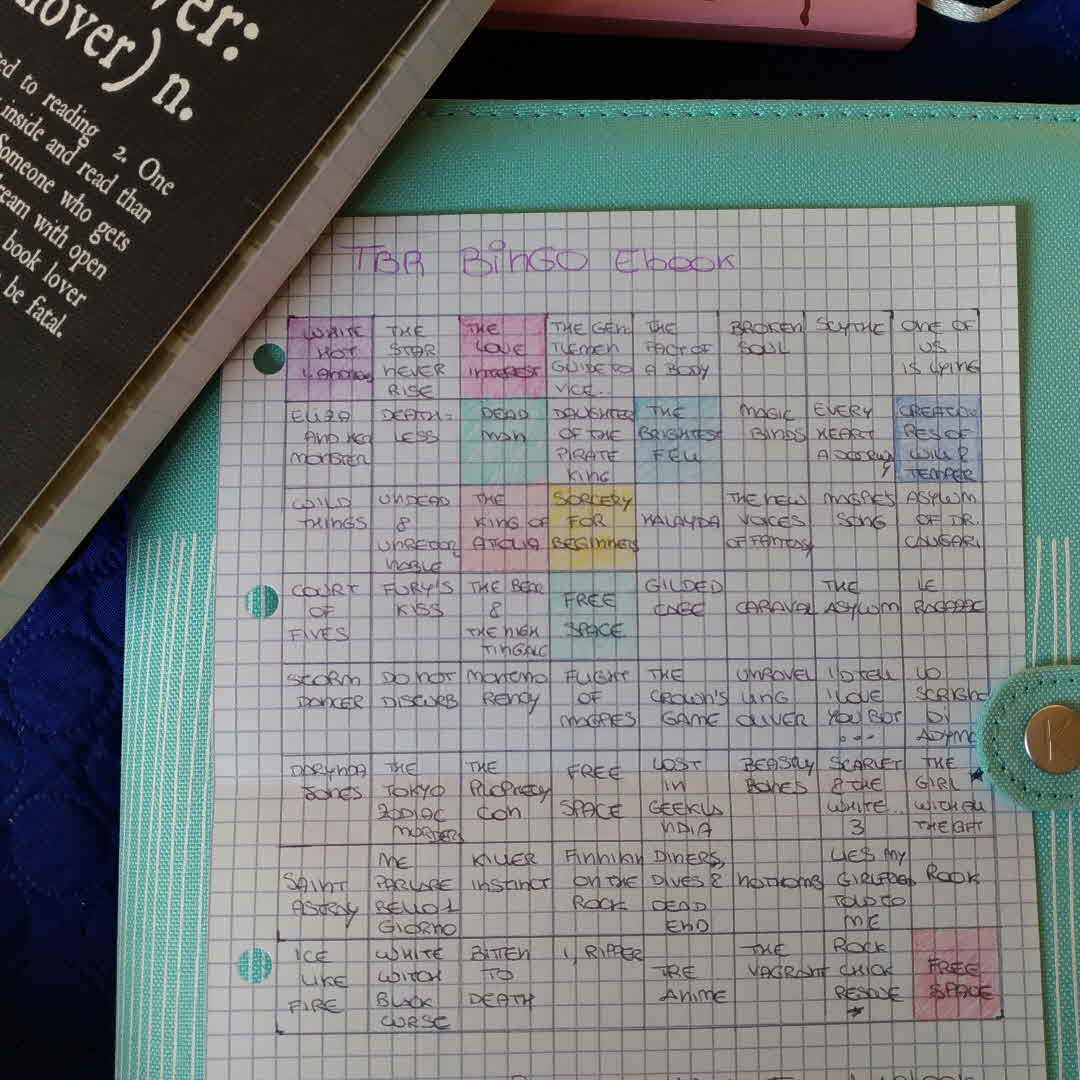 ver:
nover) n.
ed to reading 2. One
inside and read than
Someone who gets
ream with open
book lover
be fatal.
TBR BinGO Ebook
WHITE HOT
THE STAR NEVER RISE
THE LOVE INTEREST
THE GEN TLEMEN GUIDE TO VICE...
THE FACT OF A BODY
BROKEN SOUL
SCYTHE
ONE OF US IS LYING
ELIZA AND HER MONSTER
DEATH- LESS
DEAD MAN
DAUGHTER OF THE PIRATE KING
THE BRIGHTEST FELL
MAGIC BINDS
EVERY HEART A DOORWAY
WILD THINGS
UNDEAD & UNREDOR MABLE
THE KING OF ATTOLIA
SORCERY FOR BEGINNERS
MALAYDA
THE NEW VOICES OF FANTASY
MAGPIES SONG
ASYLUM OF DR. CALIGARI
COURT OF FIVES
FURY'S KISS
THE BEAR & THE NIGH TINGALE
FREE SPACE
GILDED CAGE
CARAVAL
THE ASYLUM
LE
STORM DANCER
DO NOT DISTURB
FLIGHT OF MAGPIES
THE CROWN'S GAME
UNRAVEL LING OLIVER
I'D TELL I LOVE YOU BUT ...
LO SCRIGNO DI
THE TOKYO ZODIAC MURDERS
THE PROPHECY CON
FREE SPACE
LOST IN
BEASTLY BONES
SCARLET & THE WHITE... 3
THE GIRL WITH ALL THE GIFT
SAINT
ME PARLARE BELLO 1 GIORNO
KILLER INSTINCT
Finnikin ON THE ROCK
DINERS, DIVES & DEAD END
NOTHOMB
LIES MY GIRLFRIEND TOLD TO ME
ROOK
ICE LIKE FIRE
WHITE WITCH BLACK CURSE
BITTEN TO DEATH
I, RIPPER
TRE ANIME
THE VAGRANT
ROCK CHICK RESCUE
FREE SPACE
K